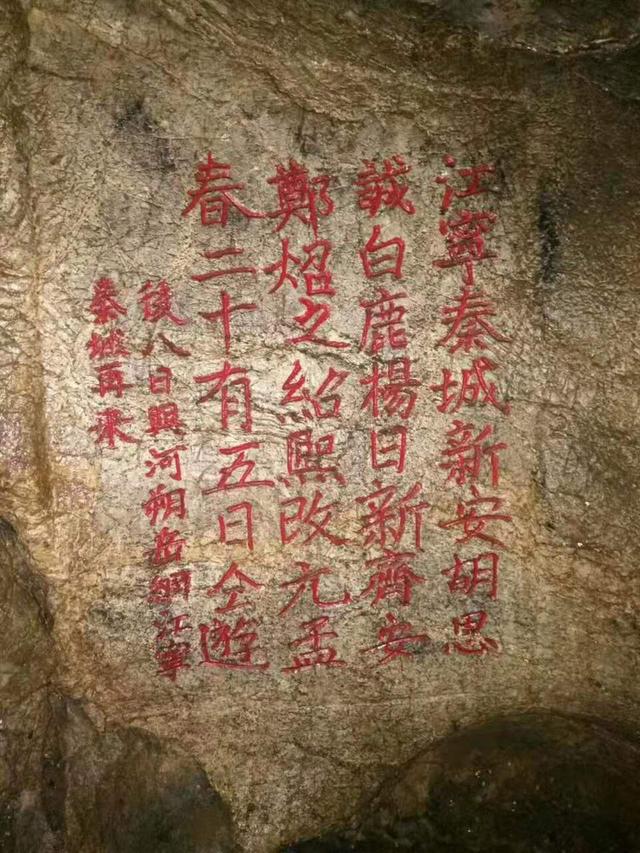 江寧秦城新安胡思
誠白鹿楊日新齊安
鄭焰之紹熙改元孟
春二十有五日仝遊
後八日與河朔岳炯江寧
秦城再來